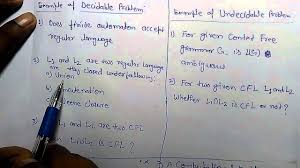 Example of Decidable Problem
1) Does finite automation accept
regular language
2) L1 and L2 are two regular language
are they closed under follow:
a) Union
eration
ene closure
L1 and L2 are two CFL
is CFL ?
Example of Undecidable Problem
1) For given Contend Free
grammar G, is L(G)
ambiguous
2) For given two CFL L1 and L2
Whether L1∩L2 is CFL or not